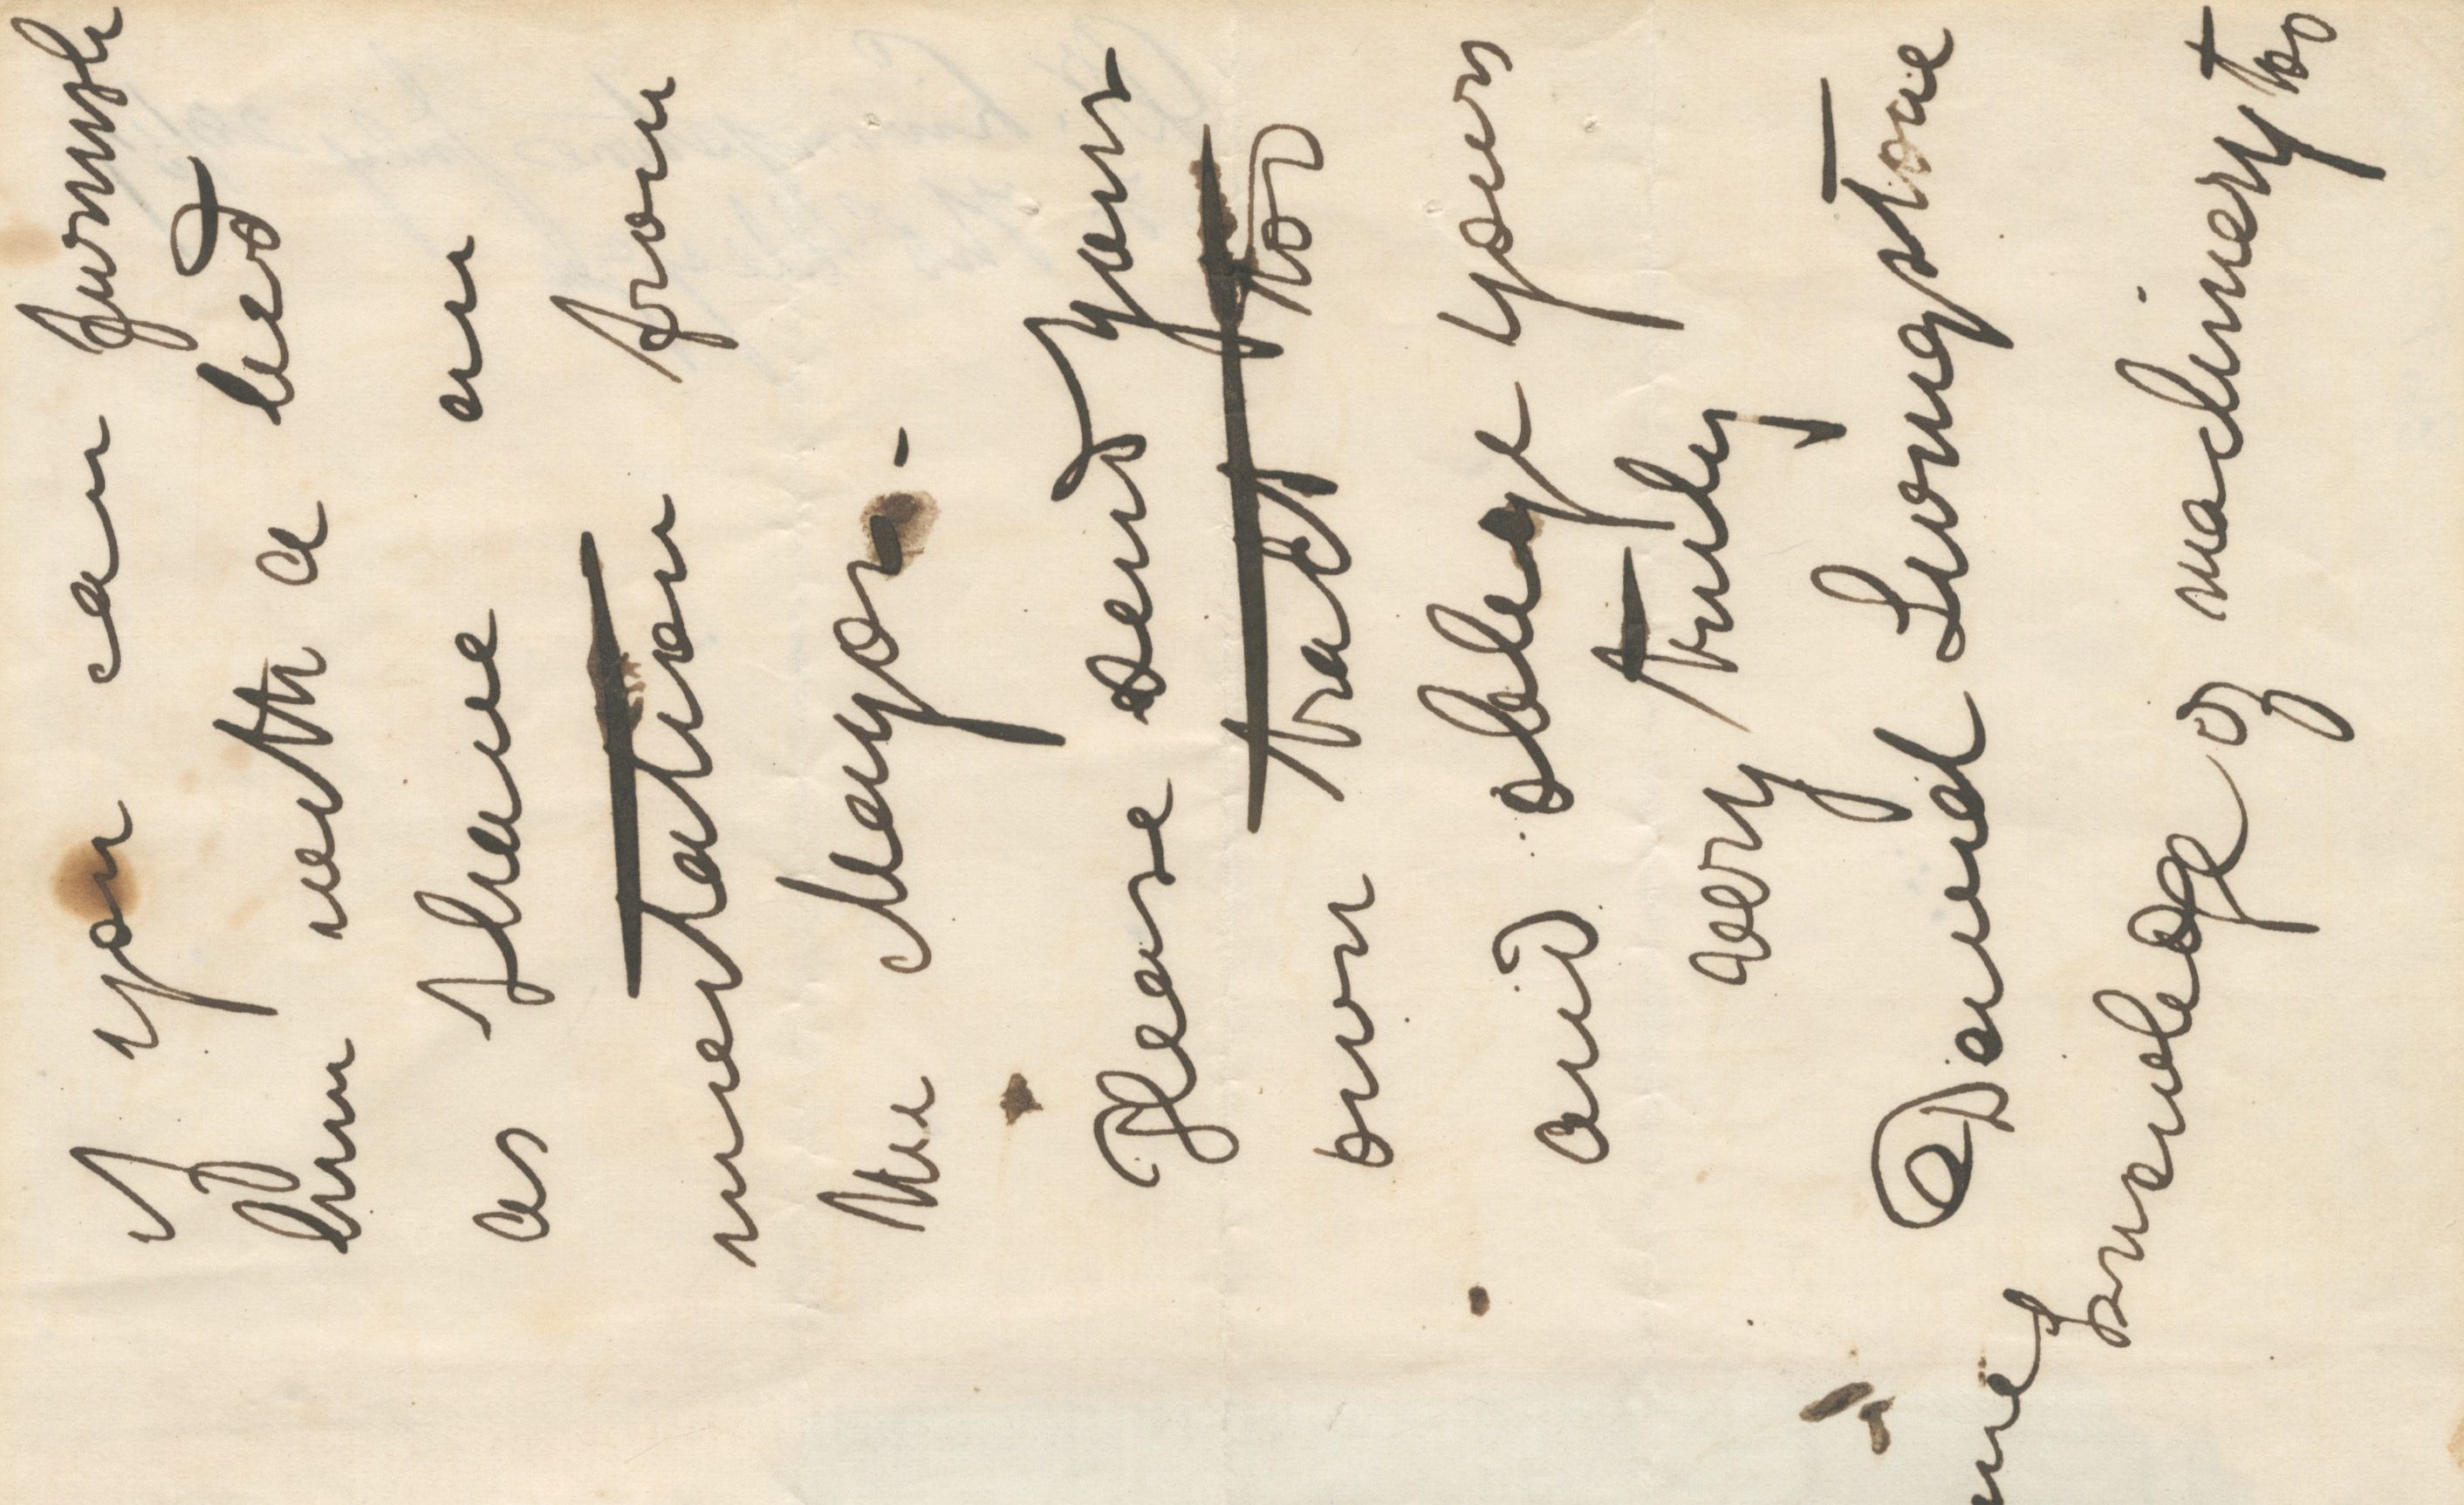 If you can furnish
him with a bed
as I have an
invitation from
the Mayor -
Please send your
own tract too
and oblige yours
very truly
David Livingstone
knowledge of machinery too